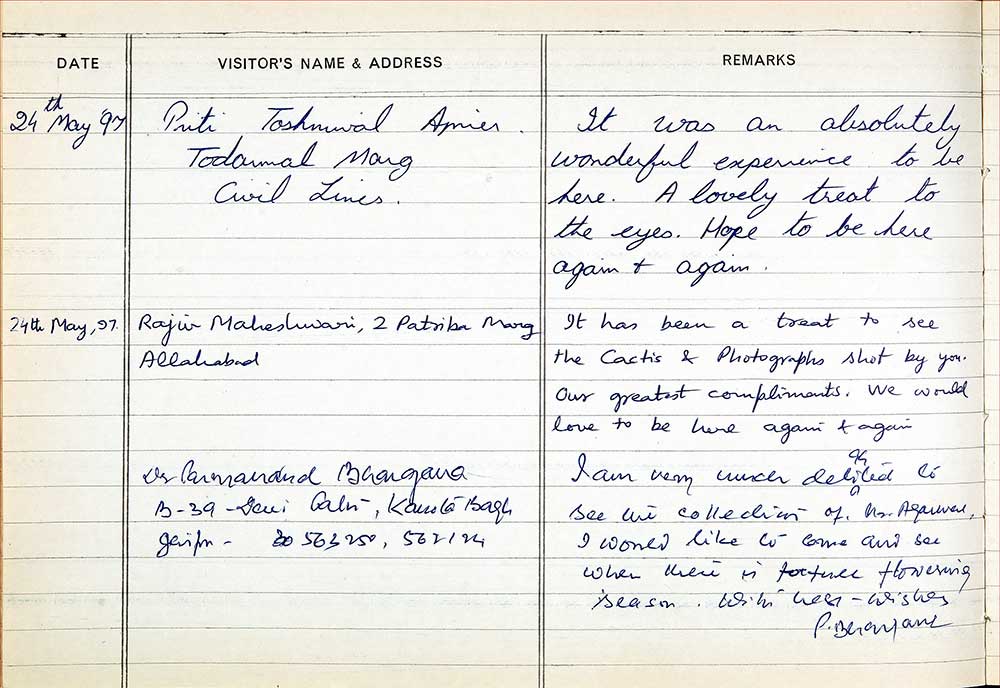 DATE
VISITOR'S NAME & ADDRESS
REMARKS
24th May '97
Priti Toshniwal
Todarmal Marg
Civil Lines.
It was an absolutely
wonderful experience to be
here. A lovely treat to
the eyes. Hope to be here
again & again.
24th May, 97.
Rajiv Maheshwari, 2 Patrika Marg
Allahabad
It has been a treat to see
the Cactis & Photographs shot by you.
Our greatest compliments. We would
love to be here again & again
Dr Parmanand Bhargava
B-39 - Gali, Bagh
563250, 562124
I am very much delighted to
see the collection of Mr. Agarwal,
I would like to come and see
when there is flowering
season. With best-wishes
P. Bhargava